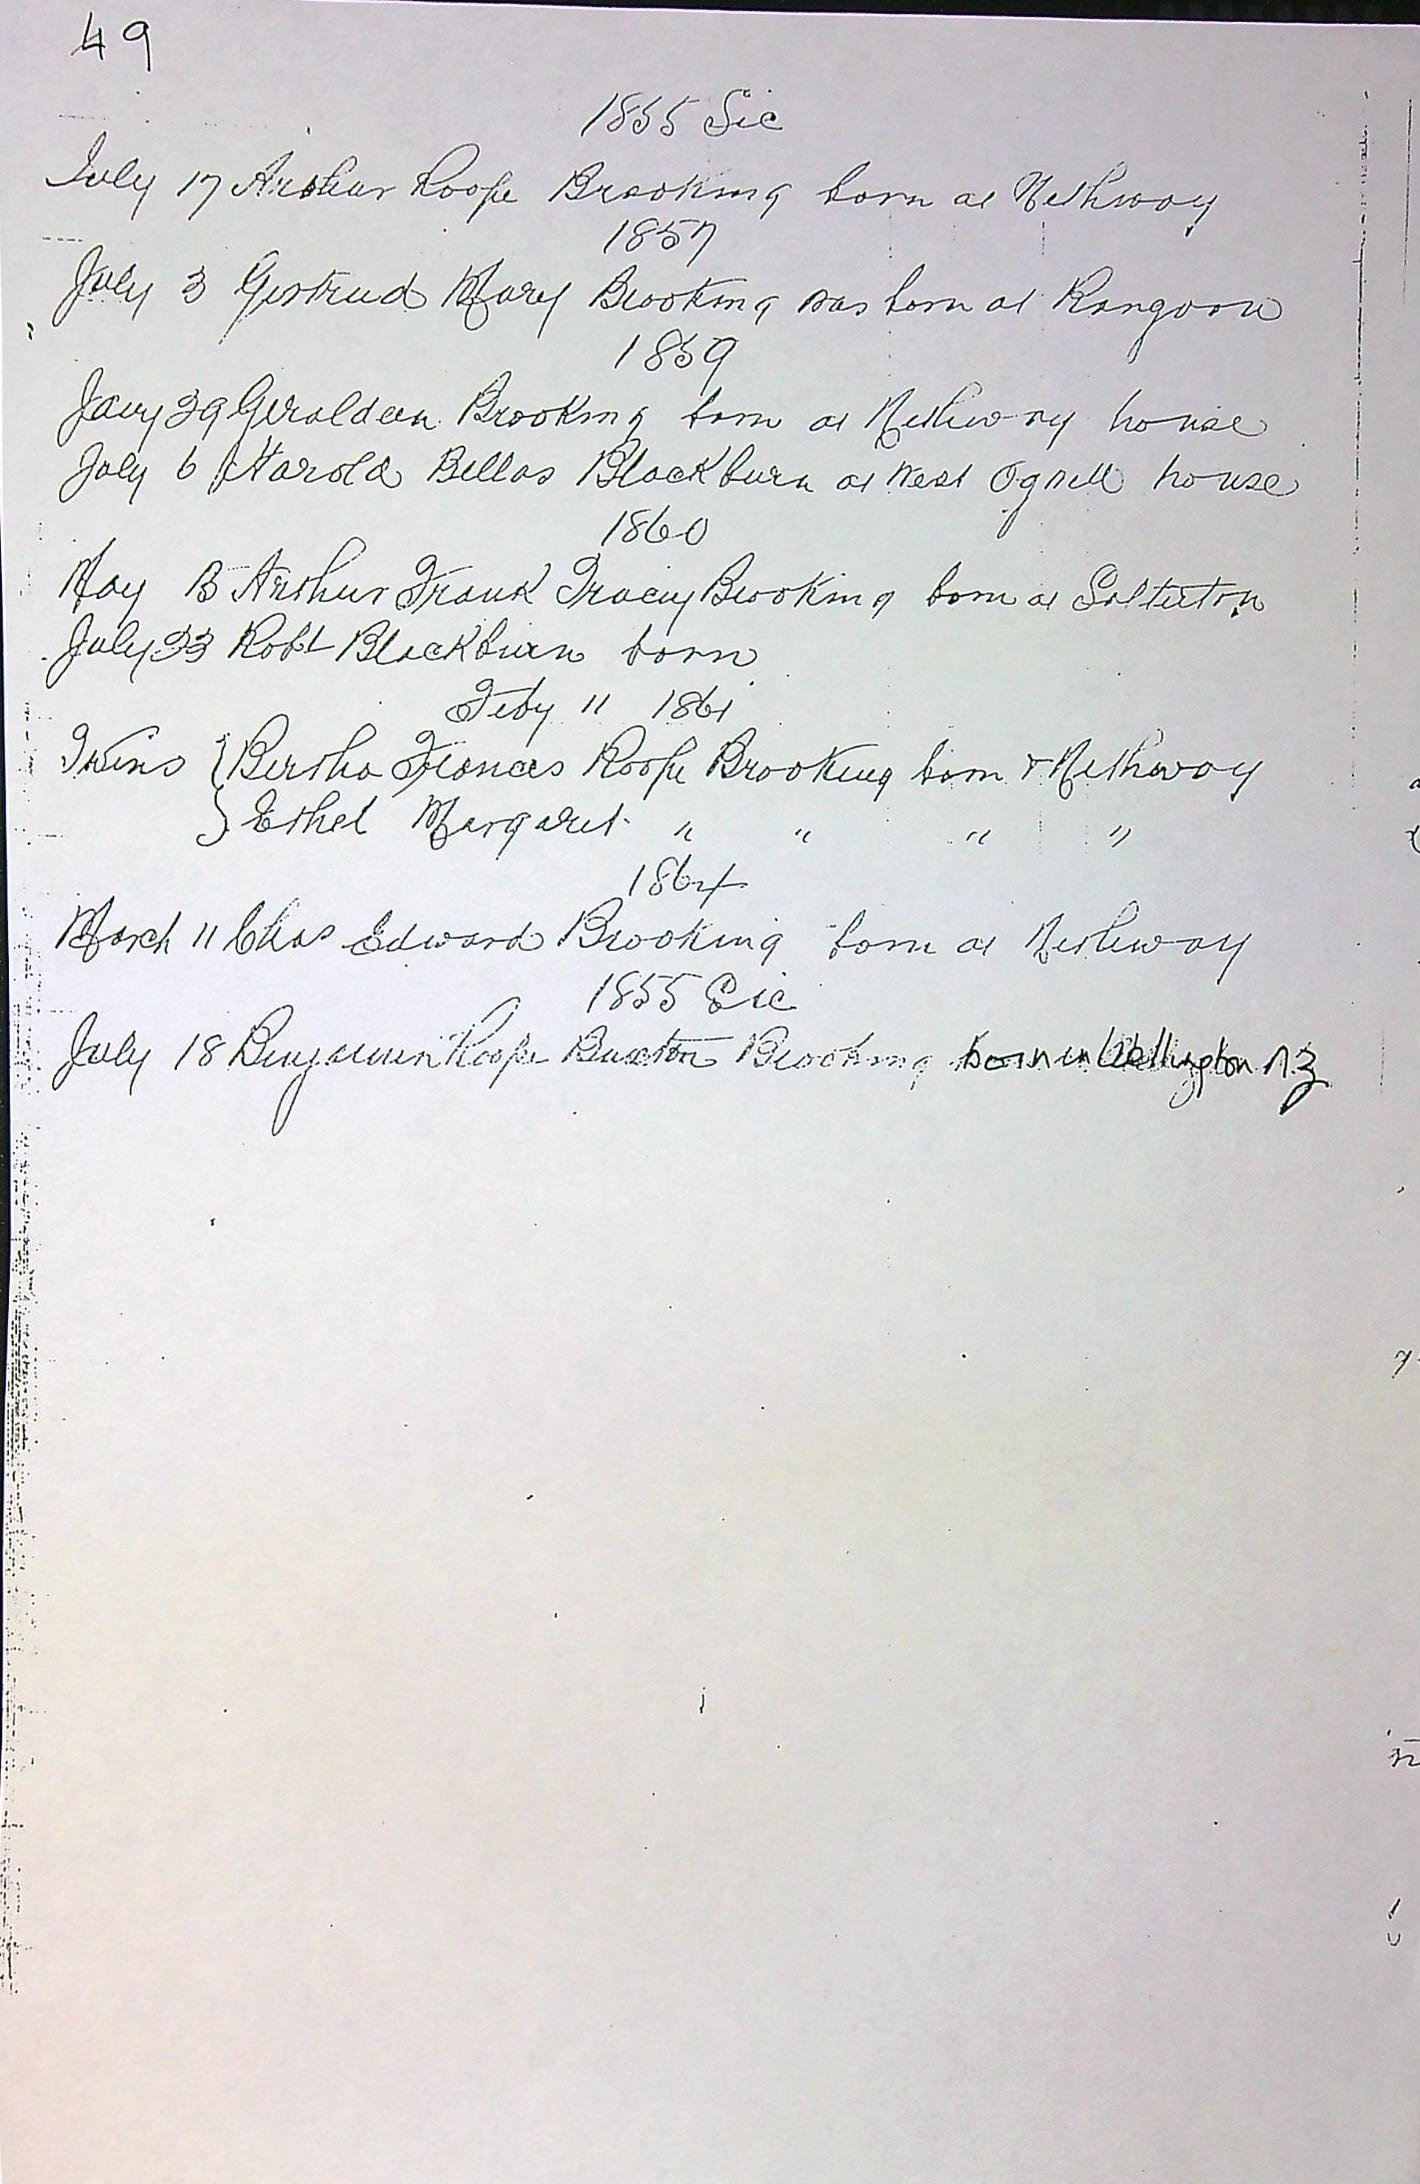 49
1855 Sic
July 17 Arthur Roope Brooking born at Nethway
1857
July 3 Gertrud Mary Brooking was born at Rangoon
1859
Jany 29 Geraldeen Brooking born at Nethway house
July 6 Harold Bellas Blackburn at West Ogwell house
1860
May 13 Arthur Frank Tracey Brooking born at Salterton
July 23 Robt Blackburn born
Feby 11 1861
Twins { Bertha Frances Roope Brooking born at Nethway
} Ethel Margaret " " " "
1864
March 11 Chas Edward Brooking born at Nethway
1855 Sic
July 18 Benjamin Roope Buxton Brooking born in Wellington N.Z